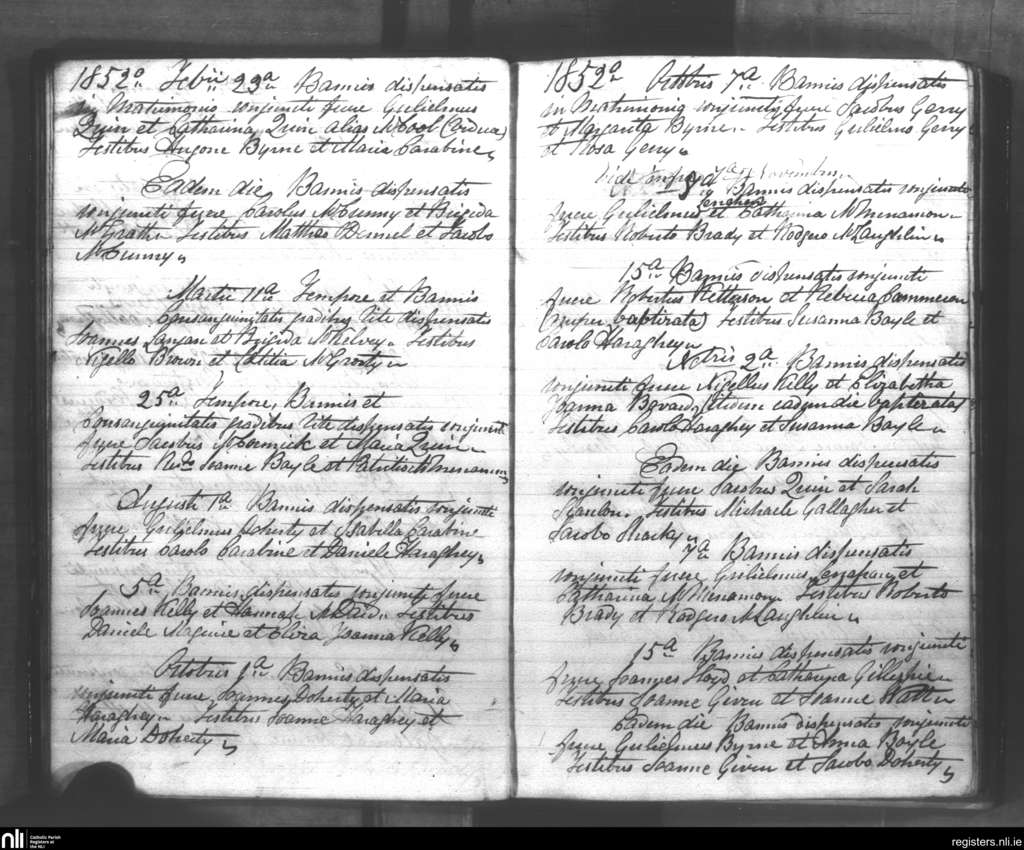 1852o Febii 23a Bannis dispensatis
in Matrimonio conjuncti fuere Gulielmus
Quin et Catharina Quin alias McCool (Vidua)
Testibus Hugone Byrne et Maria Carabine
Eadem die Bannis dispensatis
conjuncti fuere Carolus McCunny et Brigida
McGrath Testibus Mattheo et Jacobo
McCunny
Martii 11a Tempore et Bannis
Consanguinitatis gradibus rite dispensatis
Joannes et Brigida McKelvey Testibus
Nigello Brown et Letitia McGrooty
25a Tempore, Bannis et
Consanguinitatis gradibus rite dispensatis conjuncti
fuere Jacobus McCormick et Maria Quin
Testibus Revdo Joanne Boyle et Patritio McMenamin
Augusti 1a Bannis dispensatis conjuncti
fuere Gulielmus Doherty et Isabella Carabine
Testibus Carolo Carabine et Daniele Haraghey
5a Bannis dispensatis conjuncti fuere
Joannes Kelly et Hannah Testibus
Daniele Maguire et Eliza Joanna Kelly
Octobris 1a Bannis dispensatis
conjuncti fuere Joannes Doherty et Maria
Haraghey Testibus Joanne Haraghey et
Maria Doherty
1852o Octobris 7a Bannis dispensatis
in Matrimonio conjuncti fuere Jacobus Gerry
et Margarita Byrne Testibus Gulielmo Gerry
et Rosa Gerry
Vide infra 7a Novembris
8a Bannis dispensatis conjuncti
fuere Gulielmus et Catharina McMenamon
Testibus Roberto Brady et Rodgero McLaughlin
15a Bannis dispensatis conjuncti
fuere Robertus Patterson et Rebecca Cammeron
(nuper baptizata) Testibus Susanna Boyle et
Carolo Haraghey
Nobris 2a Bannis dispensatis
conjuncti fuere Nigellus Kelly et Elizabetha
Joanna eadem die baptizata
Testibus Carolo Haraghey et Susanna Boyle
Eadem die Bannis dispensatis
conjuncti fuere Jacobus Quin et Sarah
Scanlon Testibus Michaele Gallagher et
Jacobo Sharkey
7a Bannis dispensatis
conjuncti fuere Gulielmus et
Catharina McMenamon Testibus Roberto
Brady et Rodgero McLaughlin
15a Bannis dispensatis conjuncti
fuere Joannes Floyd et Catharina Gillespie
Testibus Joanne Given et Joanne
Eadem die Bannis dispensatis conjuncti
fuere Gulielmus Byrne et Anna Boyle
Testibus Joanne Given et Jacobo Doherty
nli Catholic Parish
Registers at
the NLI
registers.nli.ie